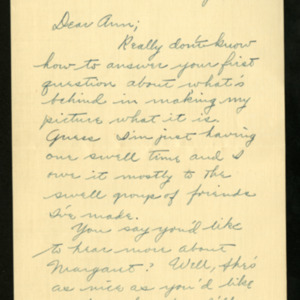 Dear Ann;
Really don't know
how to answer your first
question about what's
behind in making my
picture what it is.
Guess I'm just having
one swell time and I
owe it mostly to the
swell group of friends
I've made.
You say you'd like
to hear more about
Margaret? Well, she's
as nice as you'd like